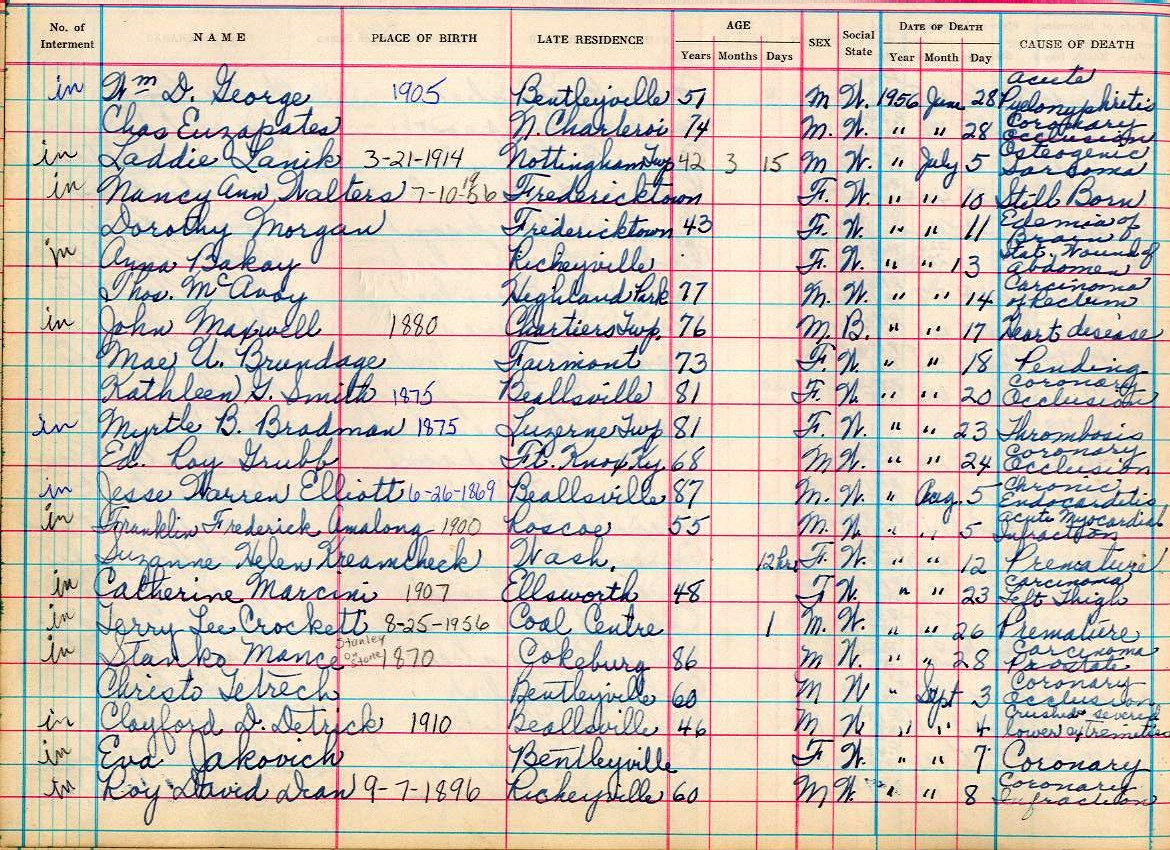 No. of Interment NAME PLACE OF BIRTH LATE RESIDENCE AGE Years Months Days SEX Social State DATE OF DEATH Year Month Day CAUSE OF DEATH
in Wm D. George 1905 Bentleyville 51 M W. 1956 June 28 acute Pyelonyphritis
Chas Euzapates N. Charleroi 74 M. W. " " 28 Coronary Occlusion
in Laddie Lanik 3-21-1914 Nottingham Twp 42 3 15 M W. " July 5 Osteogenic Sarcoma
in Nancy Ann Walters 7-10-1956 Fredericktown F. W. " " 10 Still Born
Dorothy Morgan Fredericktown 43 F. W. " " 11 Edemia of Brain
in Anna Bakay Richeyville F. W. " " 13 Stab. Wound of Abdomen
Thos. McAvoy Highland Park 77 M. W. " " 14 Carcinoma of Rectum
in John Maxwell 1880 Chartiers Twp. 76 M. B. " " 17 Heart disease
Mae U. Brundage Fairmont 73 F. W. " " 18 Pending
Kathleen G. Smith 1875 Beallsville 81 F. W. " " 20 Coronary Occlusion
in Myrtle B. Bradman 1875 Luzerne Twp 81 F. W. " " 23 Thrombosis
Ed. Roy Grubb Ft. Knox, Ky. 68 M. W. " " 24 Coronary Occlusion
in Jesse Warren Elliott 6-26-1869 Beallsville 87 M. W. " Aug. 5 Chronic Endocarditis
in Franklin Frederick Amalong 1900 Roscoe 55 M. W. " " 5 acute Myocardial Infraction
Suzanne Helen Kreamcheck Wash. 12 hrs F. W. " " 12 Premature
in Catherine Marcini 1907 Ellsworth 48 F W. " " 23 Carcinoma Left Thigh
in Terry Lee Crockett 8-25-1956 Coal Centre 1 M. W. " " 26 Premature
in Stanko Mance Stanley on Stone 1870 Cokeburg 86 M W. " " 28 Carcinoma Prostate
Christo Tetrech Bentleyville 60 M W " Sept 3 Coronary Occlusion
in Clayford D. Detrick 1910 Beallsville 46 M W " " 4 Crushed & severed lower extremeties
in Eva Jakovich Bentleyville F W. " " 7 Coronary
in Roy David Dean 9-7-1896 Richeyville 60 M W. " " 8 Coronary Infraction